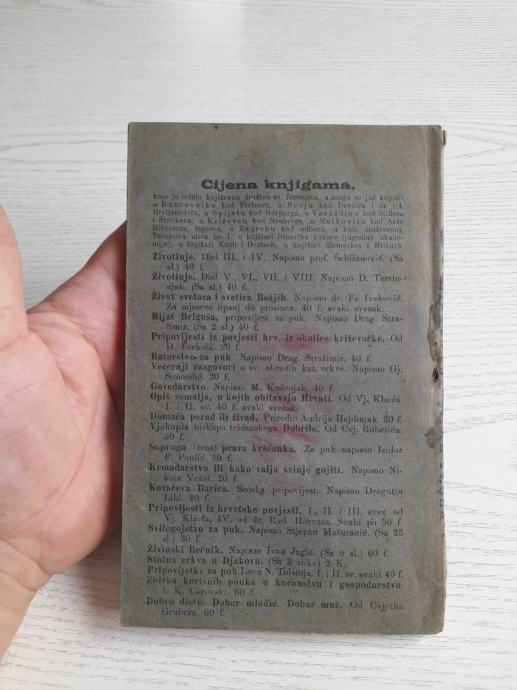 Cijena knjigama,
koje je izdalo književno društvo sv. Jeronima, a mogu se još kupiti
u Dubrovniku kod Pretnera, u Senju kod Devčića i dr. i t.
Hreljanovića, u Spljetu kod Morpurga, u Varaždinu kod Stiflera
i Streihera, u Križevcu kod Neuberga, u Metkoviću kod Ante
Nikolacza, trgovca, u Zagrebu kod odbora, u kući društvenoj,
Trenkova ulica br. 1. u knjižari Dioničke tiskare (jugoslav. akademije),
u knjižari Kugli i Deutsch, u knjižari Sirmecka i Hribara.
Životinje. Diel III. i IV. Napisao prof. Šebišanović. (Sa
sl.) 40 f.
Životinje. Diel V., VI., VII. i VIII. Napisao D. Terste-
njak. (Sa sl.) 40 f.
Život svetaca i svetica Božjih. Napisao dr. Fr. Iveković.
Za mjesece lipanj do prosinca. 40 f. svaki svezak.
Mijat Briguša, pripovijest za puk. Napisao Drag. Stra-
žimir. (Sa 2 sl.) 40 f.
Pripovijesti iz povjesti hrv. iz okolice križevačke. Od
D. Ferkića. 20 f.
Ratarstvo za puk. Napisao Drag. Stražimir. 40 f.
Večernji razgovori o sv. obredih kat. crkve. Napisao Gj.
Simončić. 20 f.
Govedarstvo. Napisao M. Kućenjak. 40 f.
Opis zemalja, u kojih obitavaju Hrvati. Od Vj. Klaića
I. i II. sv. 40 f. svaki svezak.
Domaća perad ili živad. Priredio Andrija Hajdinjak. 30 f.
Vjekopis biskupa tršćanskoga Dobrile. Od Cvj. Rubetića.
30 f.
Supruga (žena) prava kršćanka. Za puk napisao Izidor
F. Paulić. 30 f.
Krmadarstvo ili kako valja svinje gojiti. Napisao Ni-
kola Vežić. 20 f.
Kovačeva Barica. Seoska pripovijest. Napisao Dragutin
Liht. 40 f.
Pripovijesti iz hrvatske povjesti. I., II. i III. svez. od
Vj. Klaića, IV. od dr. Rud. Horvata. Svaki po 50 f.
Svilogojstvo za puk. Napisao Stjepan Mažuranić. (Sa 23
sl.) 30 f.
Živinski liečnik. Napisao Ivan Jagić. (Sa 9 sl.) 60 f.
Stolna crkva u Djakovu. (Sa 3 slike) 2 K.
Pripovijetke za puk Lava N. Tolstoja. I. i II. sv. svaki 40 f.
Zbirka korisnih pouka u kućanstvu i gospodarstvu
I. K. Cerovski. 60 f.
Dobro diete. Dobar mladić. Dobar muž. Od Cvjetka
Grubera. 60 f.